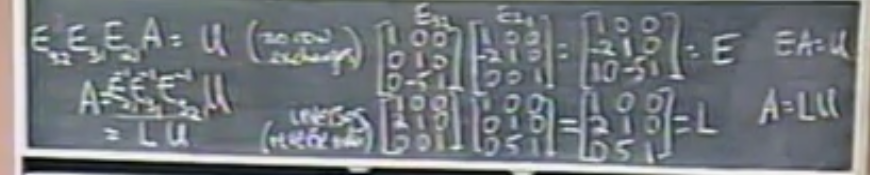 E₃₂E₃₁E₂₁A = U (no row exchanges) E₃₂ [1 0 0; 0 1 0; 0 -5 1] E₂₁ [1 0 0; -2 1 0; 0 0 1] = [1 0 0; -2 1 0; 10 -5 1] = E EA = U
A = E₂₁⁻¹E₃₁⁻¹E₃₂⁻¹U
= LU inverses (reverse order) [1 0 0; 2 1 0; 0 0 1] [1 0 0; 0 1 0; 0 5 1] = [1 0 0; 2 1 0; 0 5 1] = L A = LU